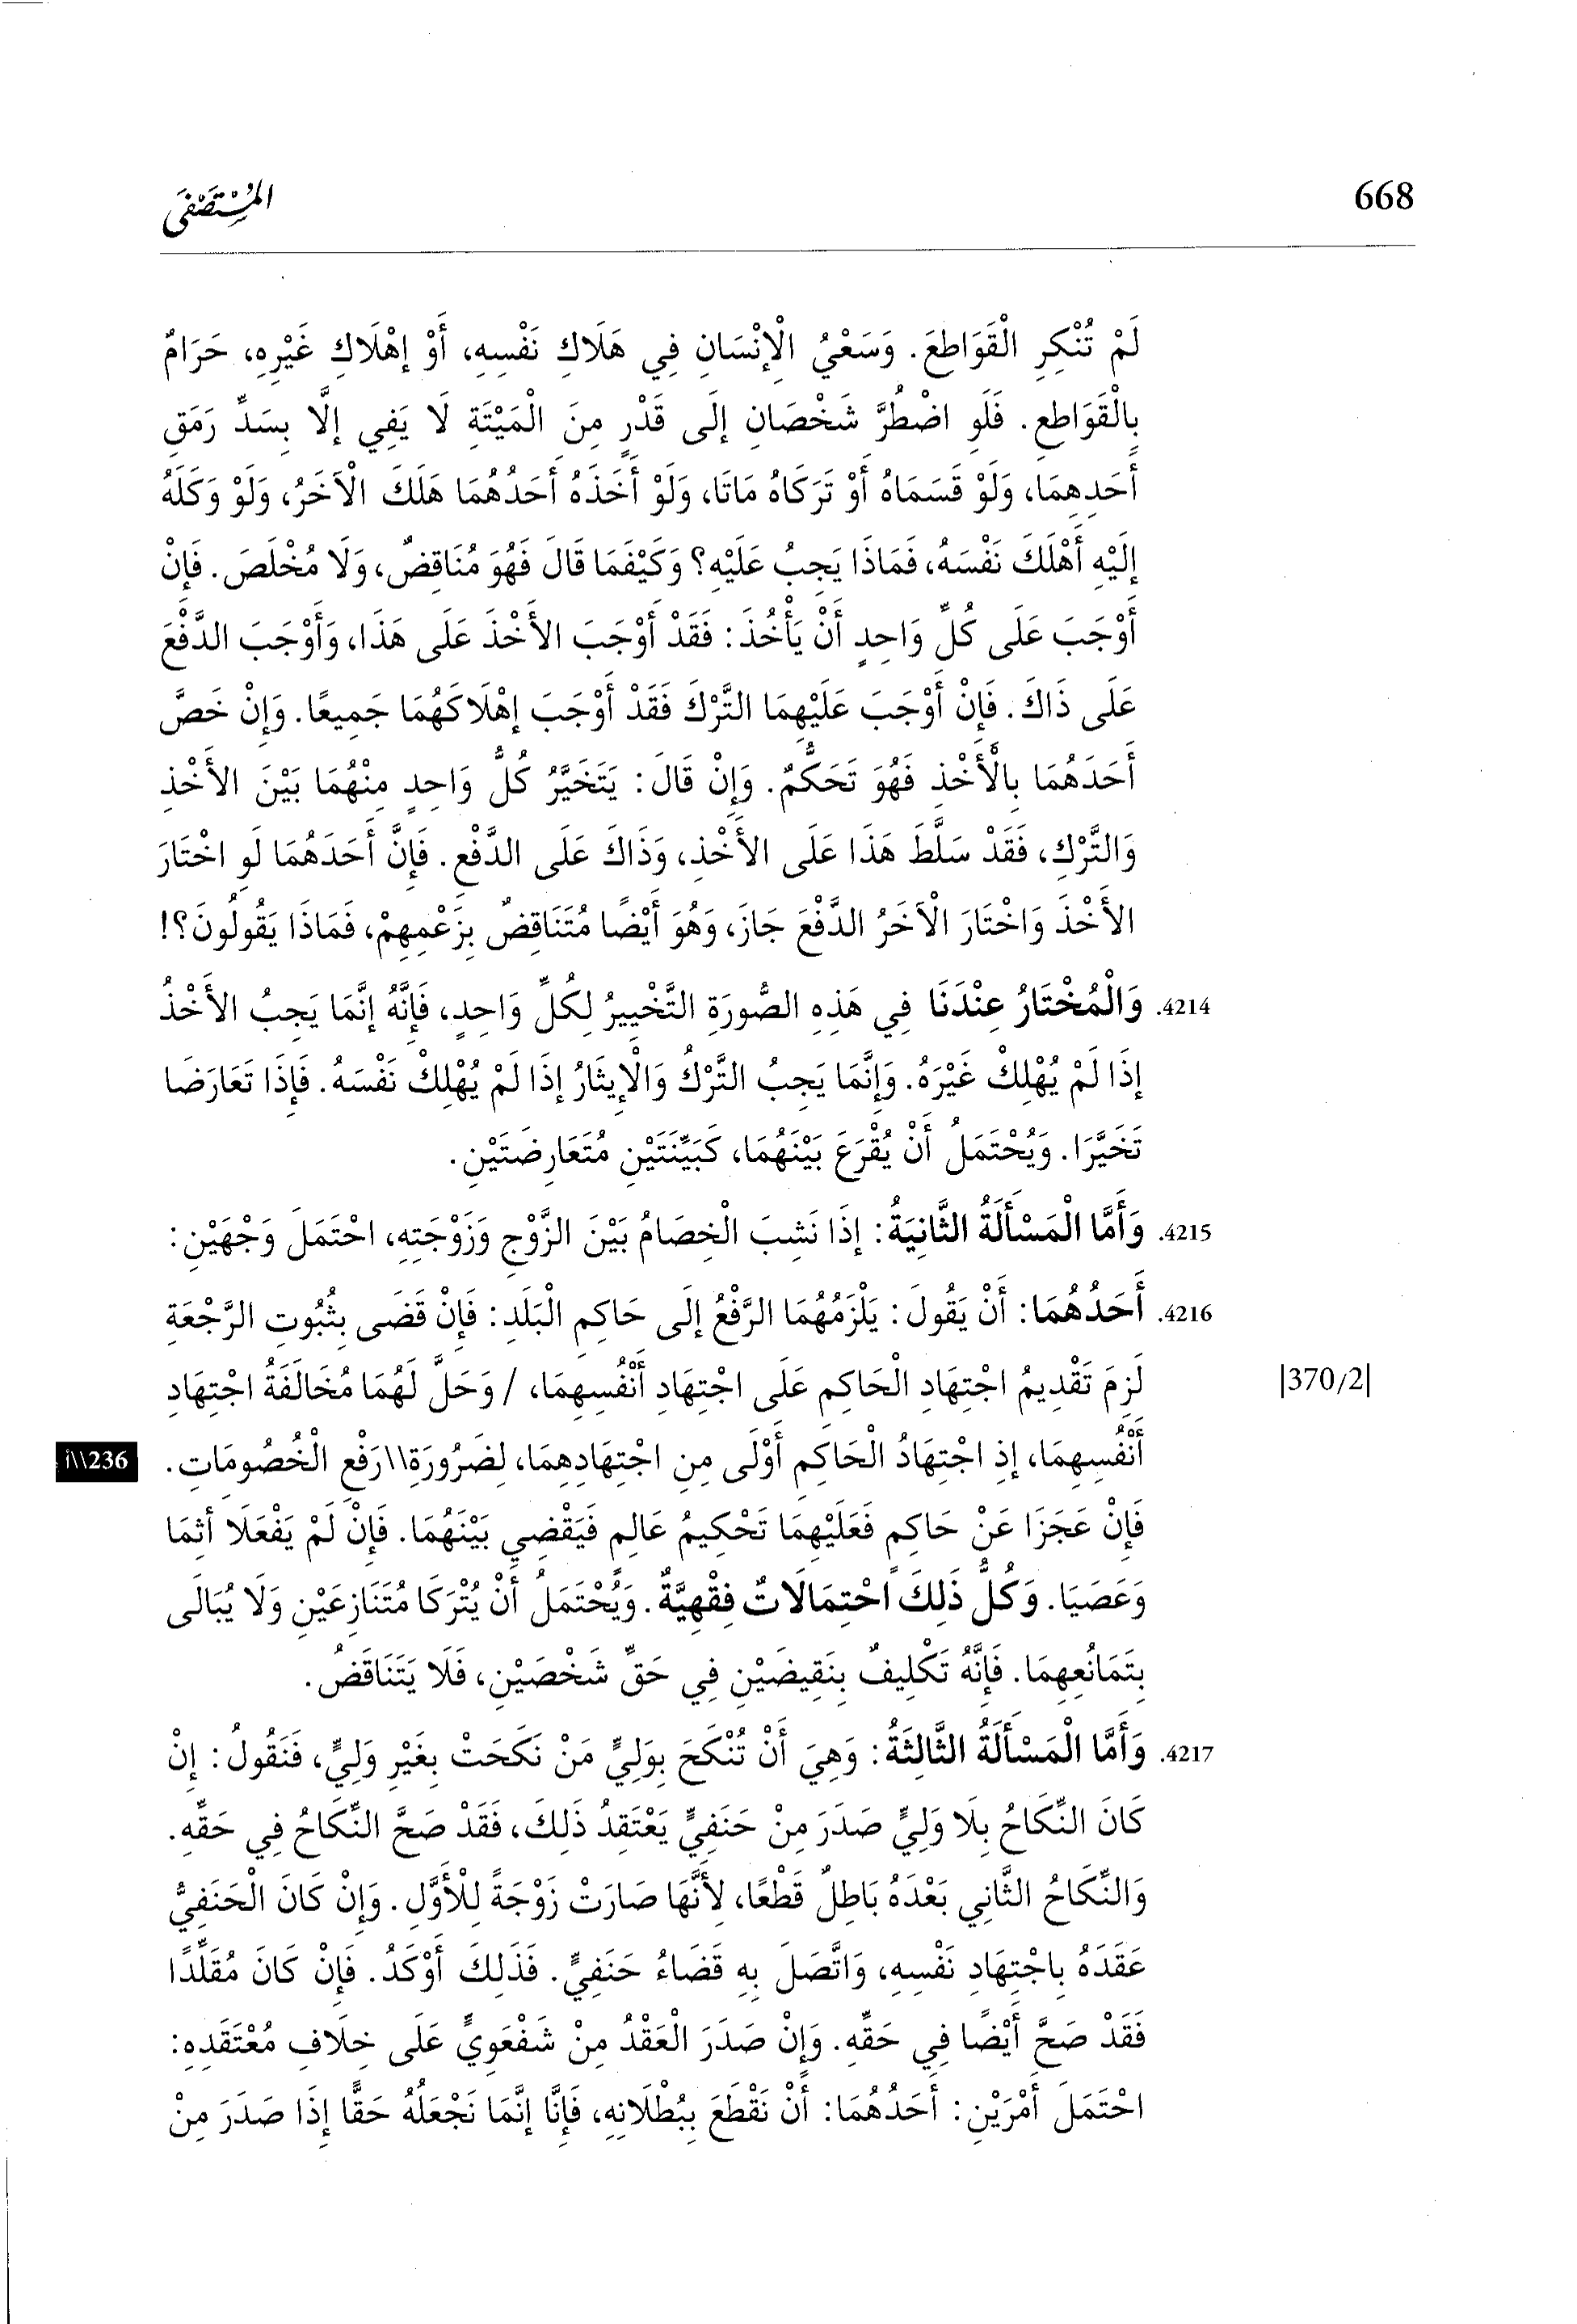 668
المُسْتَصْفَى
لَمْ تُنْكِرِ الْقَوَاطِعَ. وَسَعْيُ الْإِنْسَانِ فِي هَلَاكِ نَفْسِهِ، أَوْ إِهْلَاكِ غَيْرِهِ، حَرَامٌ
بِالْقَوَاطِعِ. فَلَوِ اضْطُرَّ شَخْصَانِ إِلَى قَدْرٍ مِنَ الْمَيْتَةِ لَا يَفِي إِلَّا بِسَدِّ رَمَقِ
أَحَدِهِمَا، وَلَوْ قَسَمَاهُ أَوْ تَرَكَاهُ مَاتَا، وَلَوْ أَخَذَهُ أَحَدُهُمَا هَلَكَ الْآخَرُ، وَلَوْ وَكَلَهُ
إِلَيْهِ أَهْلَكَ نَفْسَهُ، فَمَاذَا يَجِبُ عَلَيْهِ؟ وَكَيْفَمَا قَالَ فَهُوَ مُنَاقِضٌ، وَلَا مُخْلَصَ. فَإِنْ
أَوْجَبَ عَلَى كُلِّ وَاحِدٍ أَنْ يَأْخُذَ: فَقَدْ أَوْجَبَ الأَخْذَ عَلَى هَذَا، وَأَوْجَبَ الدَّفْعَ
عَلَى ذَاكَ. فَإِنْ أَوْجَبَ عَلَيْهِمَا التَّرْكَ فَقَدْ أَوْجَبَ إِهْلَاكَهُمَا جَمِيعًا. وَإِنْ خَصَّ
أَحَدَهُمَا بِالْأَخْذِ فَهُوَ تَحَكُّمٌ. وَإِنْ قَالَ: يَتَخَيَّرُ كُلُّ وَاحِدٍ مِنْهُمَا بَيْنَ الأَخْذِ
وَالتَّرْكِ، فَقَدْ سَلَّطَ هَذَا عَلَى الأَخْذِ، وَذَاكَ عَلَى الدَّفْعِ. فَإِنَّ أَحَدَهُمَا لَوِ اخْتَارَ
الأَخْذَ وَاخْتَارَ الْآخَرُ الدَّفْعَ جَازَ، وَهُوَ أَيْضًا مُتَنَاقِضٌ بِزَعْمِهِمْ، فَمَاذَا يَقُولُونَ؟!
4214. وَالْمُخْتَارُ عِنْدَنَا فِي هَذِهِ الصُّورَةِ التَّخْيِيرُ لِكُلِّ وَاحِدٍ، فَإِنَّهُ إِنَّمَا يَجِبُ الأَخْذُ
إِذَا لَمْ يُهْلِكْ غَيْرَهُ. وَإِنَّمَا يَجِبُ التَّرْكُ وَالْإِيثَارُ إِذَا لَمْ يُهْلِكْ نَفْسَهُ. فَإِذَا تَعَارَضَا
تَخَيَّرَا. وَيُحْتَمَلُ أَنْ يُقْرَعَ بَيْنَهُمَا، كَبَيِّنَتَيْنِ مُتَعَارِضَتَيْنِ.
4215. وَأَمَّا الْمَسْأَلَةُ الثَّانِيَةُ: إِذَا نَشِبَ الْخِصَامُ بَيْنَ الزَّوْجِ وَزَوْجَتِهِ، احْتَمَلَ وَجْهَيْنِ:
4216. أَحَدُهُمَا: أَنْ يَقُولَ: يَلْزَمُهُمَا الرَّفْعُ إِلَى حَاكِمِ الْبَلَدِ: فَإِنْ قَضَى بِثُبُوتِ الرَّجْعَةِ
لَزِمَ تَقْدِيمُ اجْتِهَادِ الْحَاكِمِ عَلَى اجْتِهَادِ أَنْفُسِهِمَا، / وَحَلَّ لَهُمَا مُخَالَفَةُ اجْتِهَادِ |370/2|
أَنْفُسِهِمَا، إِذِ اجْتِهَادُ الْحَاكِمِ أَوْلَى مِنِ اجْتِهَادِهِمَا، لِضَرُورَةِ\\رَفْعِ الْخُصُومَاتِ. 236\\أ
فَإِنْ عَجَزَا عَنْ حَاكِمٍ فَعَلَيْهِمَا تَحْكِيمُ عَالِمٍ فَيَقْضِي بَيْنَهُمَا. فَإِنْ لَمْ يَفْعَلَا أَثِمَا
وَعَصَيَا. وَكُلُّ ذَلِكَ احْتِمَالَاتٌ فِقْهِيَّةٌ. وَيُحْتَمَلُ أَنْ يُتْرَكَا مُتَنَازِعَيْنِ وَلَا يُبَالَى
بِتَمَانُعِهِمَا. فَإِنَّهُ تَكْلِيفٌ بِنَقِيضَيْنِ فِي حَقِّ شَخْصَيْنِ، فَلَا يَتَنَاقَضُ.
4217. وَأَمَّا الْمَسْأَلَةُ الثَّالِثَةُ: وَهِيَ أَنْ تُنْكَحَ بِوَلِيٍّ مَنْ نَكَحَتْ بِغَيْرِ وَلِيٍّ، فَنَقُولُ: إِنْ
كَانَ النِّكَاحُ بِلَا وَلِيٍّ صَدَرَ مِنْ حَنَفِيٍّ يَعْتَقِدُ ذَلِكَ، فَقَدْ صَحَّ النِّكَاحُ فِي حَقِّهِ.
وَالنِّكَاحُ الثَّانِي بَعْدَهُ بَاطِلٌ قَطْعًا، لِأَنَّهَا صَارَتْ زَوْجَةً لِلْأَوَّلِ. وَإِنْ كَانَ الْحَنَفِيُّ
عَقَدَهُ بِاجْتِهَادِ نَفْسِهِ، وَاتَّصَلَ بِهِ قَضَاءُ حَنَفِيٍّ. فَذَلِكَ أَوْكَدُ. فَإِنْ كَانَ مُقَلِّدًا
فَقَدْ صَحَّ أَيْضًا فِي حَقِّهِ. وَإِنْ صَدَرَ الْعَقْدُ مِنْ شَفْعَوِيٍّ عَلَى خِلَافِ مُعْتَقَدِهِ:
احْتَمَلَ أَمْرَيْنِ: أَحَدُهُمَا: أَنْ نَقْطَعَ بِبُطْلَانِهِ، فَإِنَّا إِنَّمَا نَجْعَلُهُ حَقًّا إِذَا صَدَرَ مِنْ